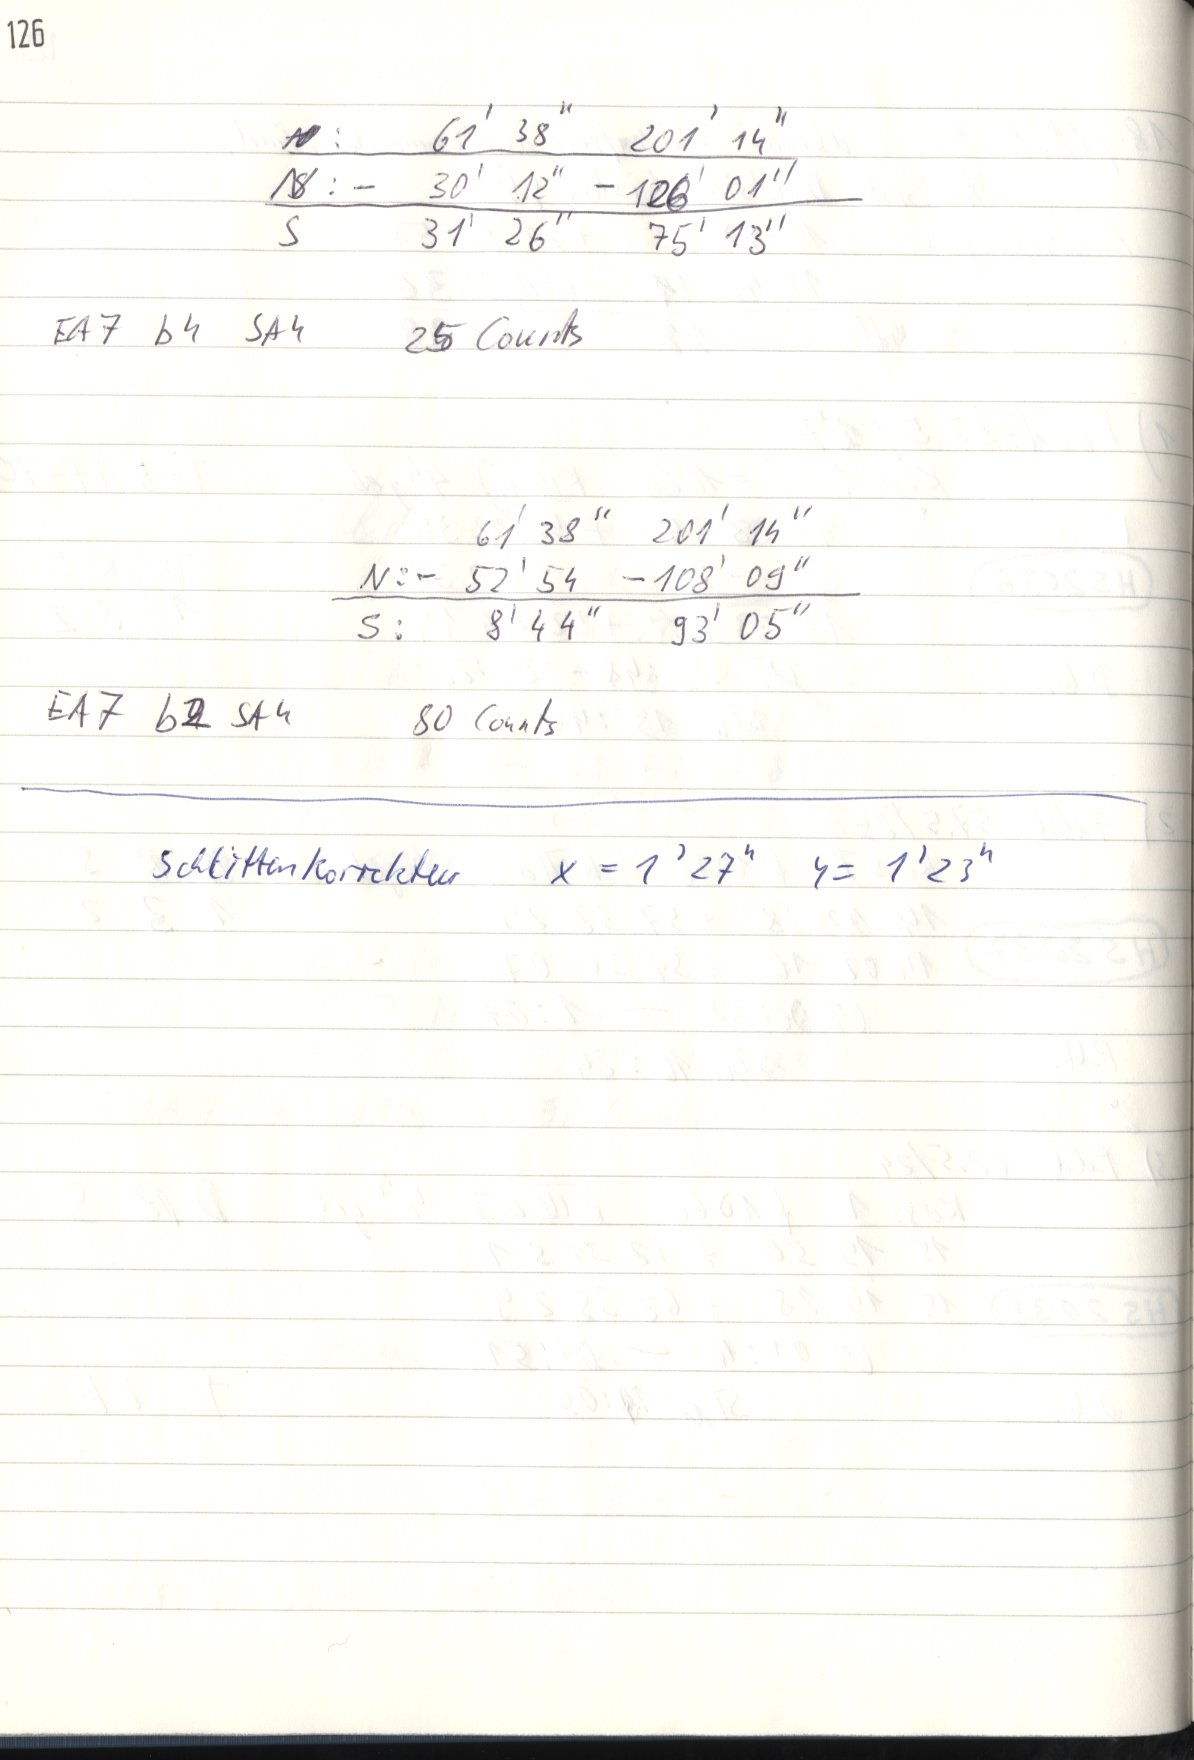 126
N: 61' 38" 201' 14"
N: - 30' 12" - 126' 01"
S 31' 26" 75' 13"
EA7 b4 SA4 25 Counts
61' 38" 201' 14"
N: - 52' 54 - 108' 09"
S: 8' 44" 93' 05"
EA7 b2 SA4 80 Counts
Schlittenkorrektur x = 1' 27" y = 1' 23"